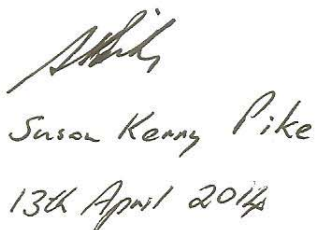 Susan Kenny Pike
13th April 2014